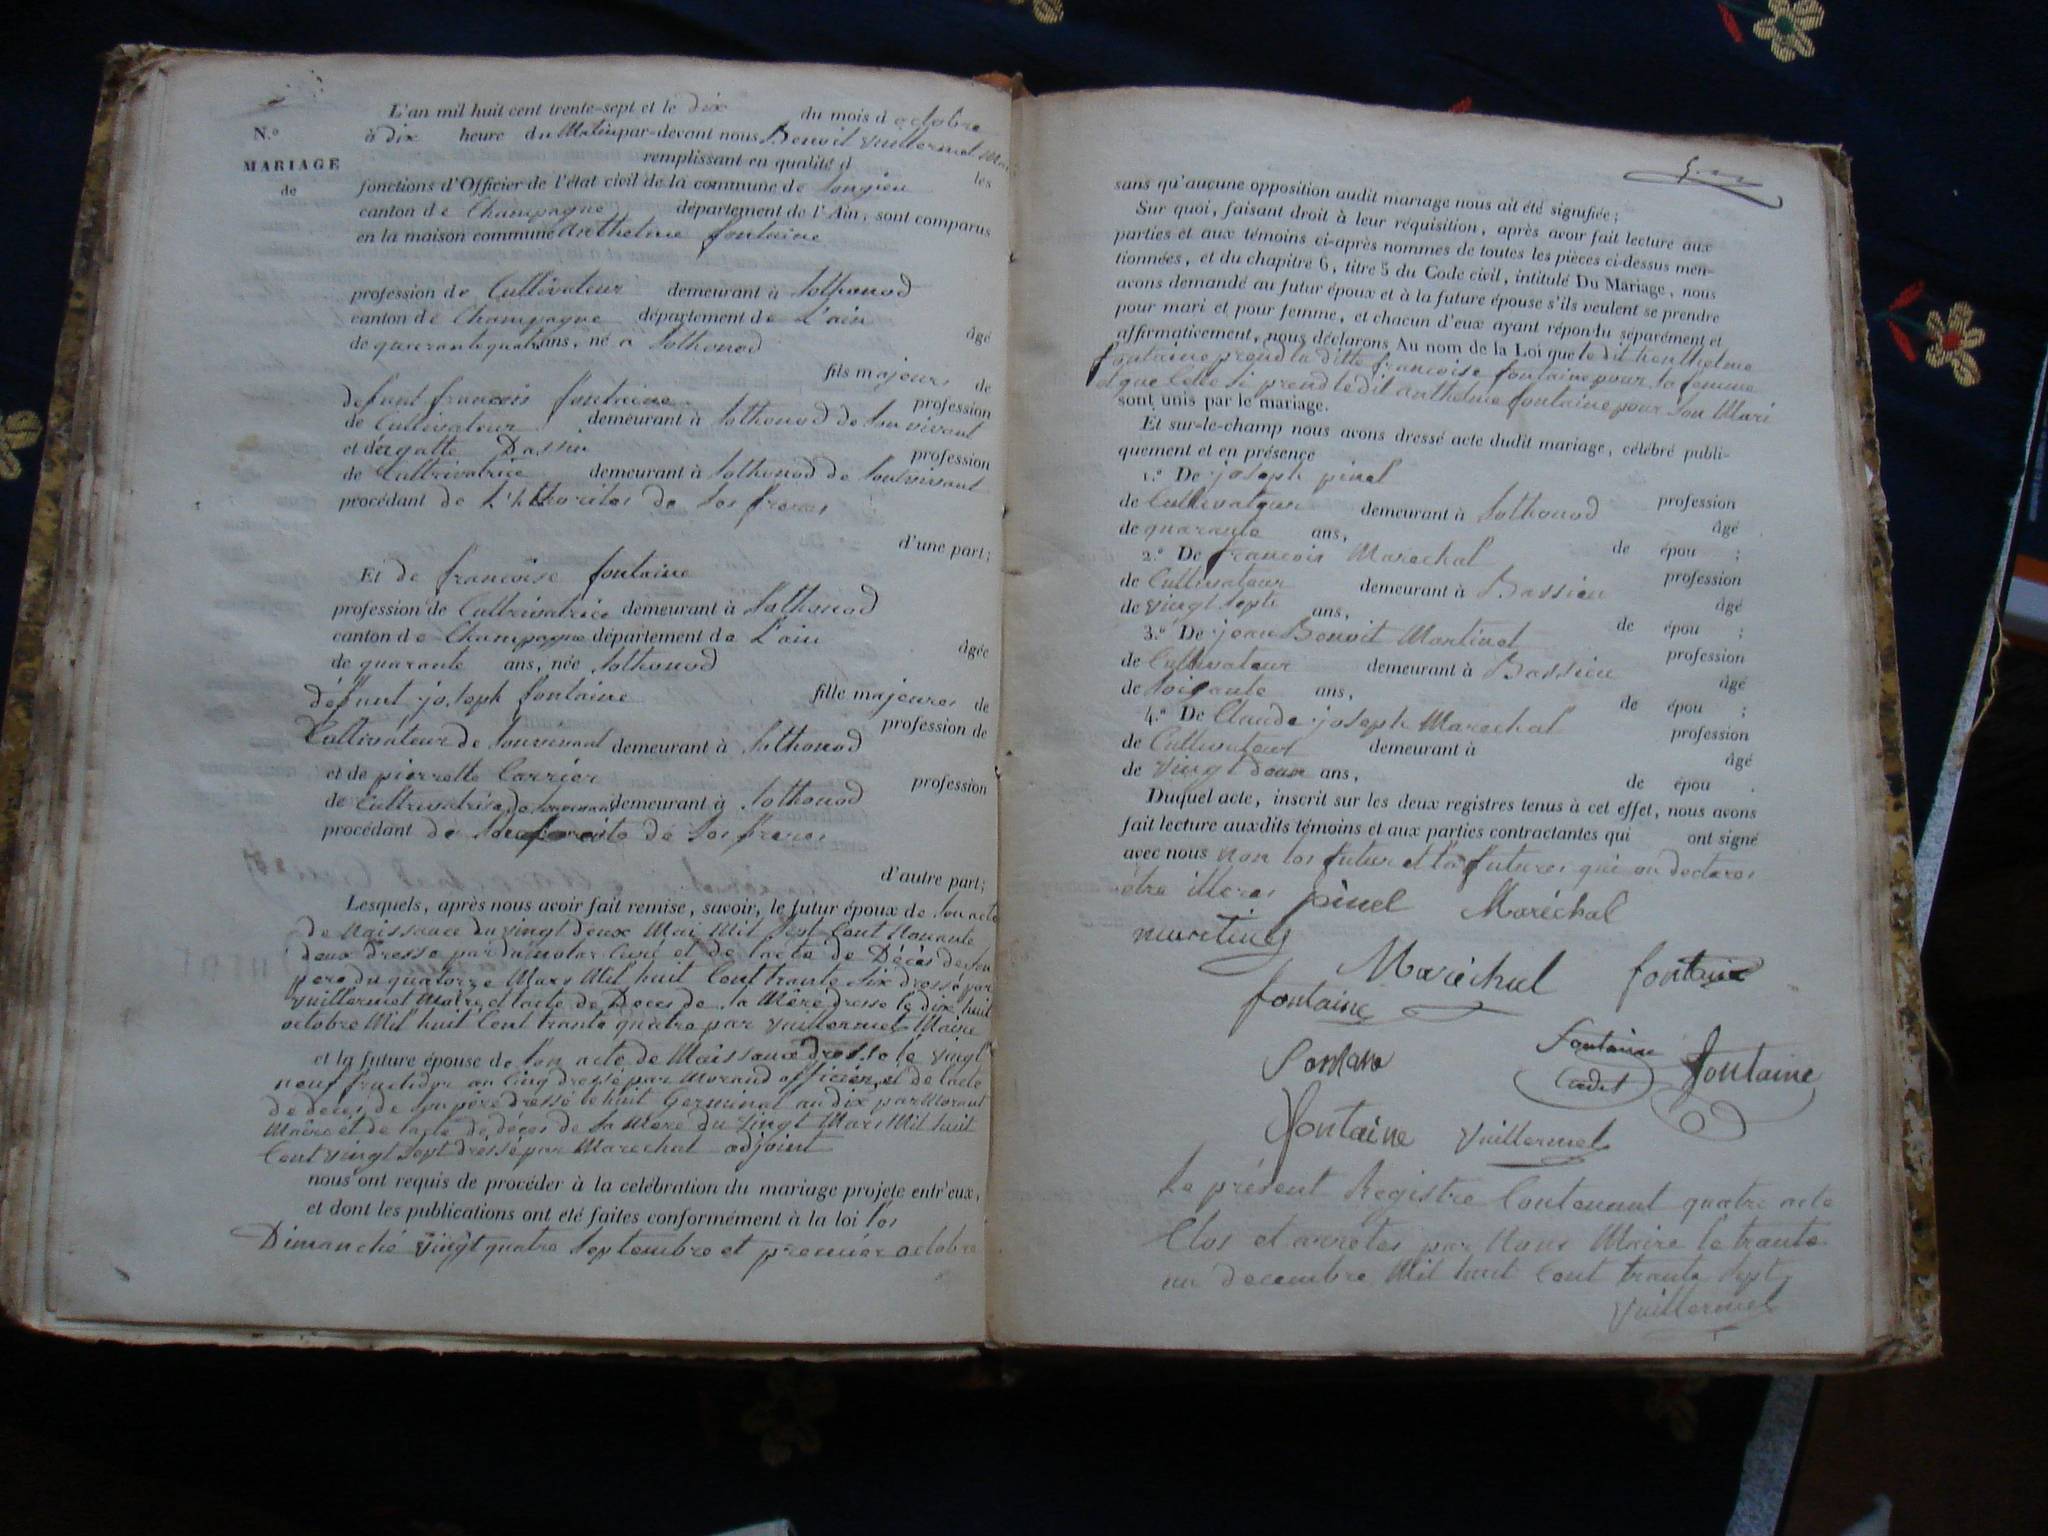 N.o
MARIAGE
de
L'an mil huit cent trente-sept et le dix du mois d octobre
à dix heure du Matin par-devant nous Benoit Vuillermet Maire
remplissant en qualité d les
fonctions d'Officier de l'état civil de la commune de Songieu
canton de Champagne département de l'Ain, sont comparus
en la maison commune Anthelme fontaine
profession de Cultivateur demeurant à Sothonod
canton de Champagne département de L'ain
âgé
de quarante quatre ans, né à Sothonod
fils majeur de
defunt francois fontaine profession
de Cultivateur demeurant à Sothonod de Son vivant
et d'ergatte Dassin profession
de Cultivatrice demeurant à Sothonod de Sonvivant
procédant de L'hthorites de Ses freres
d'une part;
Et de francoise fontaine
profession de Cultrivatrice demeurant à Sothonod
canton de Champagne département de L'ain
âgée
de quarante ans, née Sothonod
fille majeure de
défunt joseph fontaine profession de
Cultivateur de Sonvivant demeurant à Sothonod
et de pierrette Carrier profession
de Cultrivatrise de Sonvivant demeurant à Sothonod
procédant de de Ses freres
d'autre part;
Lesquels, après nous avoir fait remise, savoir, le futur époux de Son acte
de Naissance du vingt deux Mai Mil Sept Cent Nonante
deux dressé par Curé et de l'acte de Décès de Son
pere du quatorze Mars Mil huit Cent trante Six dressé par
Vuillermet Maire et l'acte de Deces de Sa Mère dresse le dix huit
octobre Mil huit Cent trante quatre par Vuillermet Maire
et la future épouse de Son acte de Naissance dressé le vingt
neuf fructidor an Cinq dressé par Morand officier et de l'acte
de deces de Son père dressé le huit Germinal an dix par Morant
Maire et de l'acte de déces de Sa Mere du vingt Mars Mil huit
Cent vingt Sept dressé par Marechal adjoint
nous ont requis de procéder à la celébration du mariage projeté entr'eux,
et dont les publications ont été faites conformément à la loi les
Dimanché vingt quatre Septembre et premiér octobre
sans qu'aucune opposition audit mariage nous ait été signifiée;
Sur quoi, faisant droit à leur réquisition, après avoir fait lecture aux
parties et aux témoins ci-après nommes de toutes les pièces ci-dessus men-
tionnées, et du chapitre 6, titre 5 du Code civil, intitulé Du Mariage, nous
avons demandé au futur époux et à la future épouse s'ils veulent se prendre
pour mari et pour femme, et chacun d'eux ayant répondu séparément et
affirmativement, nous déclarons Au nom de la Loi que le dit henthelme
fontaine prend la ditte francoise fontaine pour Sa femme
et que Celle Si prend le dit anthelme fontaine pour Son Mari
sont unis par le mariage.
Et sur-le-champ nous avons dressé acte dudit mariage, célébré publi-
quement et en présence
1.o De joseph pinel
profession
de Cultivateur demeurant à Sothonod
âgé
de quarante ans, de épou ;
2.o De francois Marechal
profession
de Cultivateur demeurant à Bassieu
âgé
de vingt Sept ans, de épou ;
3.o De jean Benoit Martinet
profession
de Cultivateur demeurant à Bassieu
âgé
de Soisante ans, de épou ;
4.o De Claude joseph Marechal
profession
de Cultivateur demeurant à
âgé
de vingt deux ans, de épou .
Duquel acte, inscrit sur les deux registres tenus à cet effet, nous avons
fait lecture auxdits témoins et aux parties contractantes qui ont signé
avec nous Non les futur et la futures qui on declares
étre illeres pinel Maréchal
Maréchal fontaine
fontaine
Fontaine
Cadet fontaine
fontaine Vuillermet
Le présent Registre Contenant quatre acte
Clos et arretés par Nous Maire le trante
un decembre Mil huit Cent trante Sept
Vuillermet